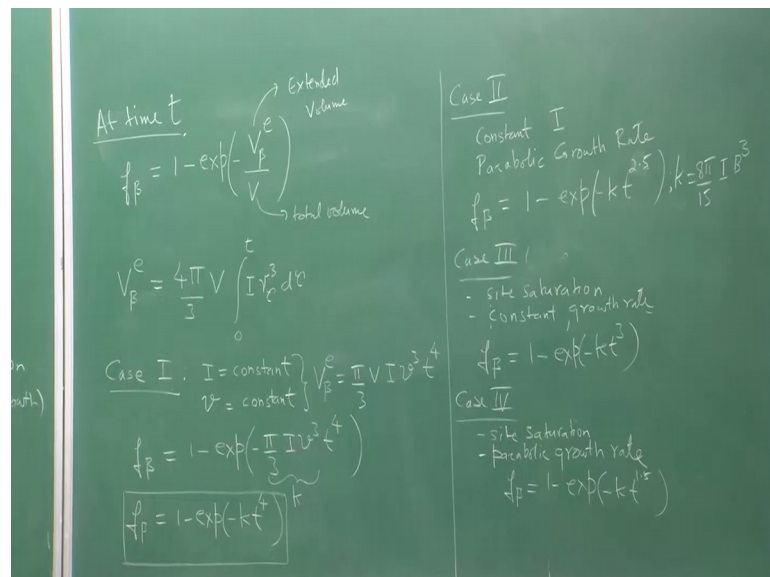 on
owth)
At time t,
Extended
Volume
f_β = 1 - exp(-V_β^e/V)
total volume
V_β^e = 4π/3 V ∫_0^t I r_τ^3 dτ
Case I : I = constant
v = constant } V_β^e = π/3 V I v^3 t^4
f_β = 1 - exp(-π/3 I v^3 t^4)
k
f_β = 1 - exp(-kt^4)
Case II
Constant I
Parabolic Growth Rate
f_β = 1 - exp(-kt^2.5); k = 8π/15 I B^3
Case III
- site saturation
- constant growth rate
f_β = 1 - exp(-kt^3)
Case IV
- site saturation
- parabolic growth rate
f_β = 1 - exp(-kt^1.5)